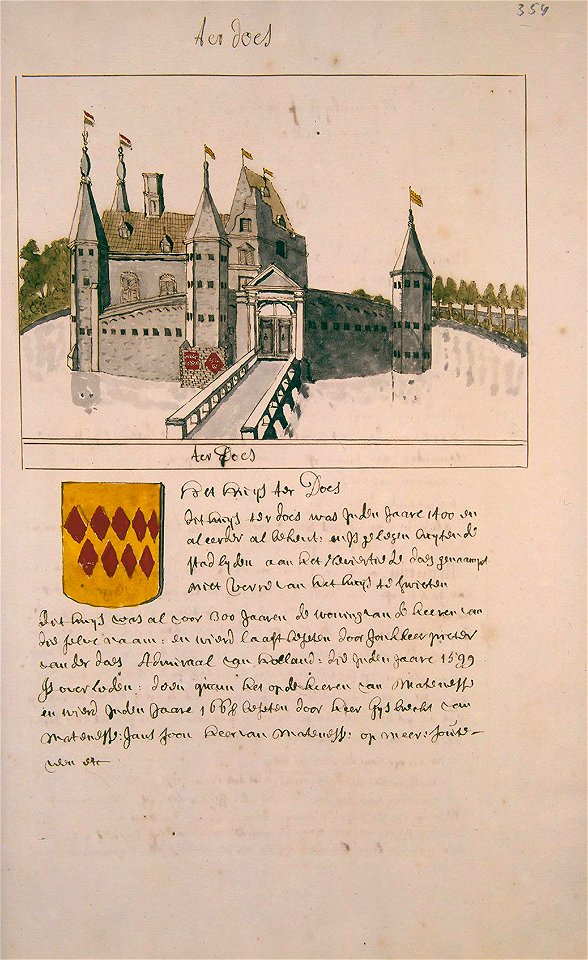 359
ter does
ter Does
het huijs ter Does
dit huijs ter does was Inden Jaare 1400 en
al eerder al bekent: en is gelegen buijten de
stad lijden aan het Reviertie de does genaampt
niet verre van het huijs te Swieten
dit huijs was al voor 300 Jaaren de woning van de heeren van
die selve naam: en wierd laast beseten door Jonkheer pieter
van der does Admiraal van holland: die Inden Jaare 1599
Is overleden: doen quam het op de heeren van Matenesse
en wierd Inden Jaare 1668 beseten door heer Gijsbrecht van
Matenesse: Jans soon heer van Matenesse: op meer: soute-
veen etc